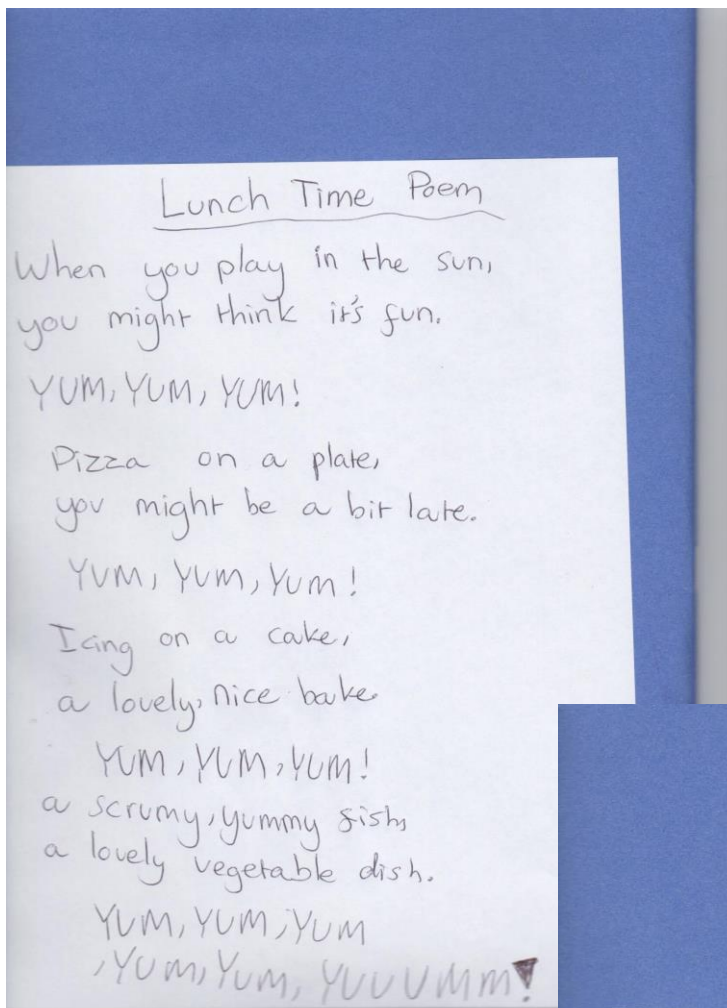 Lunch Time Poem
When you play in the sun,
you might think it's fun.
YUM, YUM, YUM!
Pizza on a plate,
you might be a bit late.
YUM, YUM, YUM!
Icing on a cake,
a lovely, nice bake.
YUM, YUM, YUM!
a scrumy, yummy fish,
a lovely vegetable dish.
YUM, YUM, YUM
, YUM, YUM, YUUUMM!